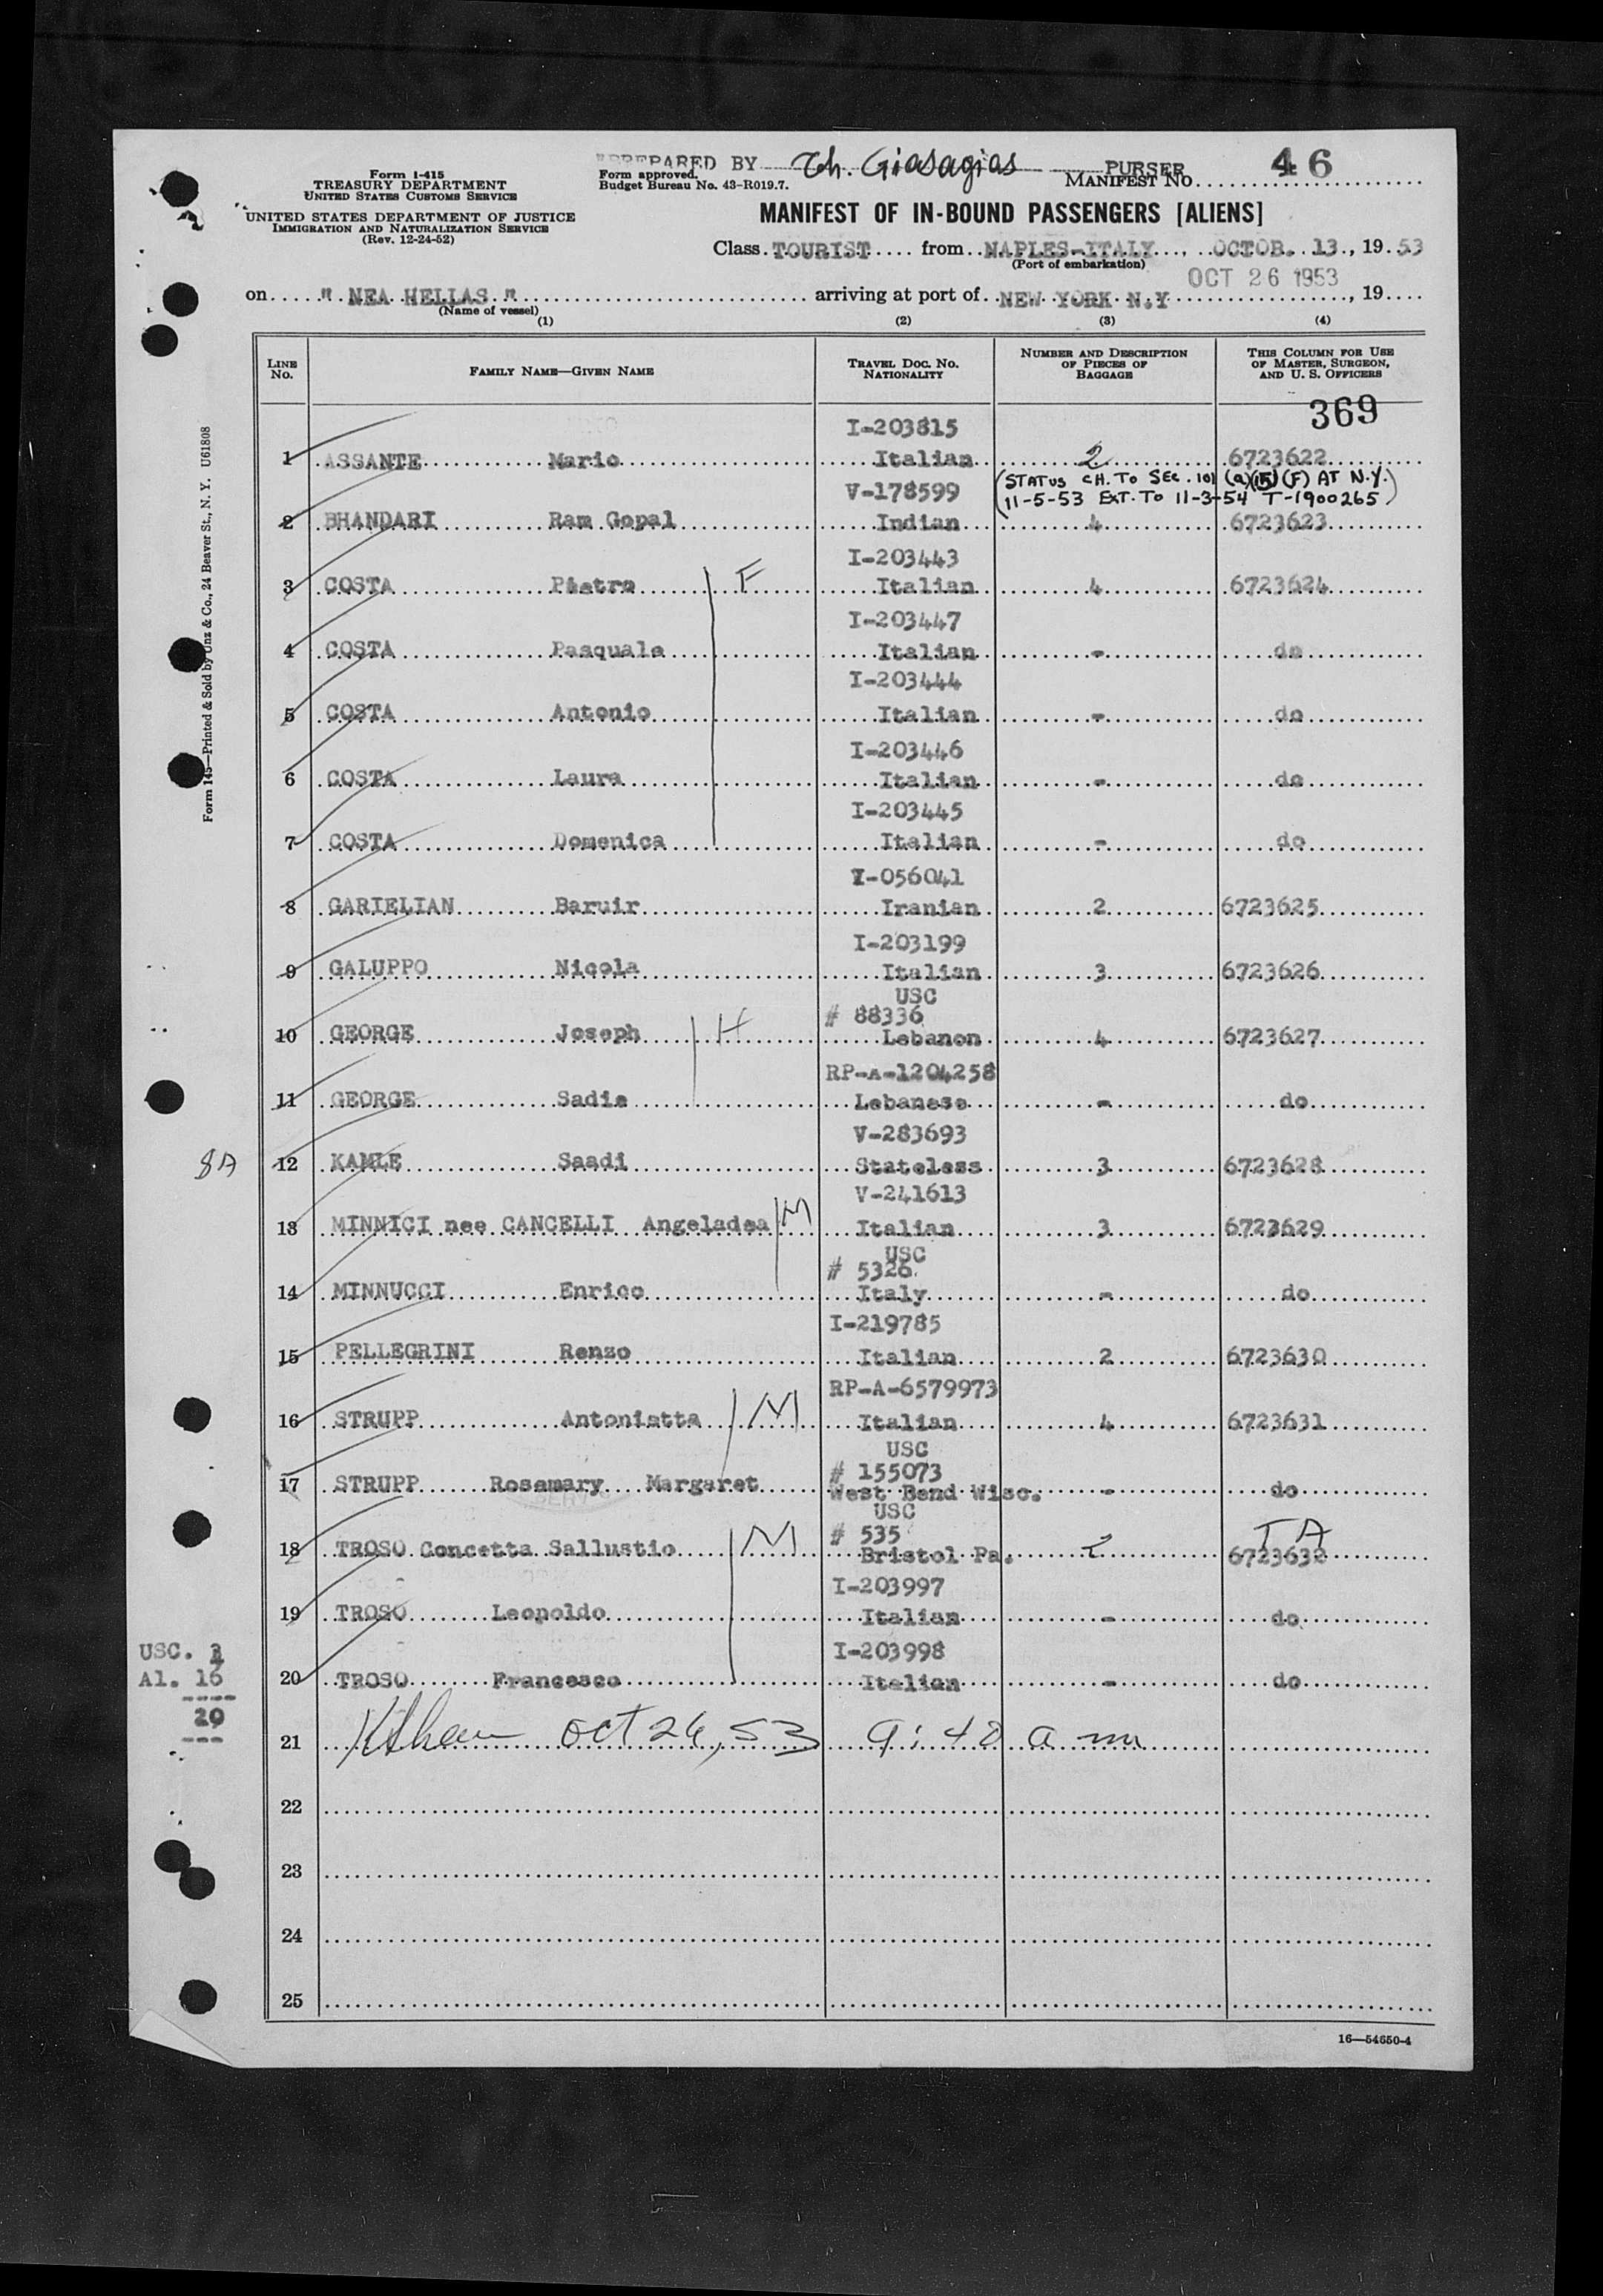 "PREPARED BY Th. Giasagias PURSER
Form I-415
TREASURY DEPARTMENT
UNITED STATES CUSTOMS SERVICE
UNITED STATES DEPARTMENT OF JUSTICE
IMMIGRATION AND NATURALIZATION SERVICE
(Rev. 12-24-52)
Form approved.
Budget Bureau No. 43-R019.7.
MANIFEST NO. 46
MANIFEST OF IN-BOUND PASSENGERS [ALIENS]
Class TOURIST from NAPLES-ITALY, OCTOB. 13., 19 53
(Port of embarkation)
OCT 26 1953
on " NEA HELLAS " arriving at port of NEW YORK N.Y , 19
(Name of vessel)
(1) (2) (3) (4)
LINE NO. FAMILY NAME—GIVEN NAME TRAVEL DOC. NO. NATIONALITY NUMBER AND DESCRIPTION OF PIECES OF BAGGAGE THIS COLUMN FOR USE OF MASTER, SURGEON, AND U. S. OFFICERS
369
I-203815
1 ASSANTE Mario Italian 2 6723622
(STATUS CH. TO SEC. 101 (a)(15)(F) AT N.Y.
11-5-53 EXT. TO 11-3-54 T-1900265)
V-178599
2 BHANDARI Ram Gopal Indian 4 6723623
I-203443
3 COSTA Pietro F Italian 4 6723624
I-203447
4 COSTA Pasquale Italian - do
I-203444
5 COSTA Antonio Italian - do
I-203446
6 COSTA Laura Italian - do
I-203445
7 COSTA Domenica Italian - do
I-056041
8 GARIELIAN Baruir Iranian 2 6723625
I-203199
9 GALUPPO Nicola Italian 3 6723626
USC
# 88336
10 GEORGE Joseph H Lebanon 4 6723627
RP-A-1204258
11 GEORGE Sadie Lebanese - do
V-283693
8A 12 KAMLE Saadi Stateless 3 6723628
V-241613
13 MINNICI nee CANCELLI Angeladea M Italian 3 6723629
USC
# 5326
14 MINNUCCI Enrico Italy - do
I-219785
15 PELLEGRINI Renzo Italian 2 6723630
RP-A-6579973
16 STRUPP Antonietta M Italian 4 6723631
USC
# 155073
17 STRUPP Rosemary Margaret West Bend Wisc. - do
USC
# 535
TA
18 TROSO Concetta Sallustio M Bristol Pa. 2 6723632
I-203997
19 TROSO Leopoldo Italian - do
I-203998
20 TROSO Francesco Italian - do
USC.
Al. 16
----
20
---
21 Oct 26, 53 9:48 am
22
23
24
25
16—54650-4
Form 145—Printed & Sold by Unz & Co., 24 Beaver St., N. Y. U61808